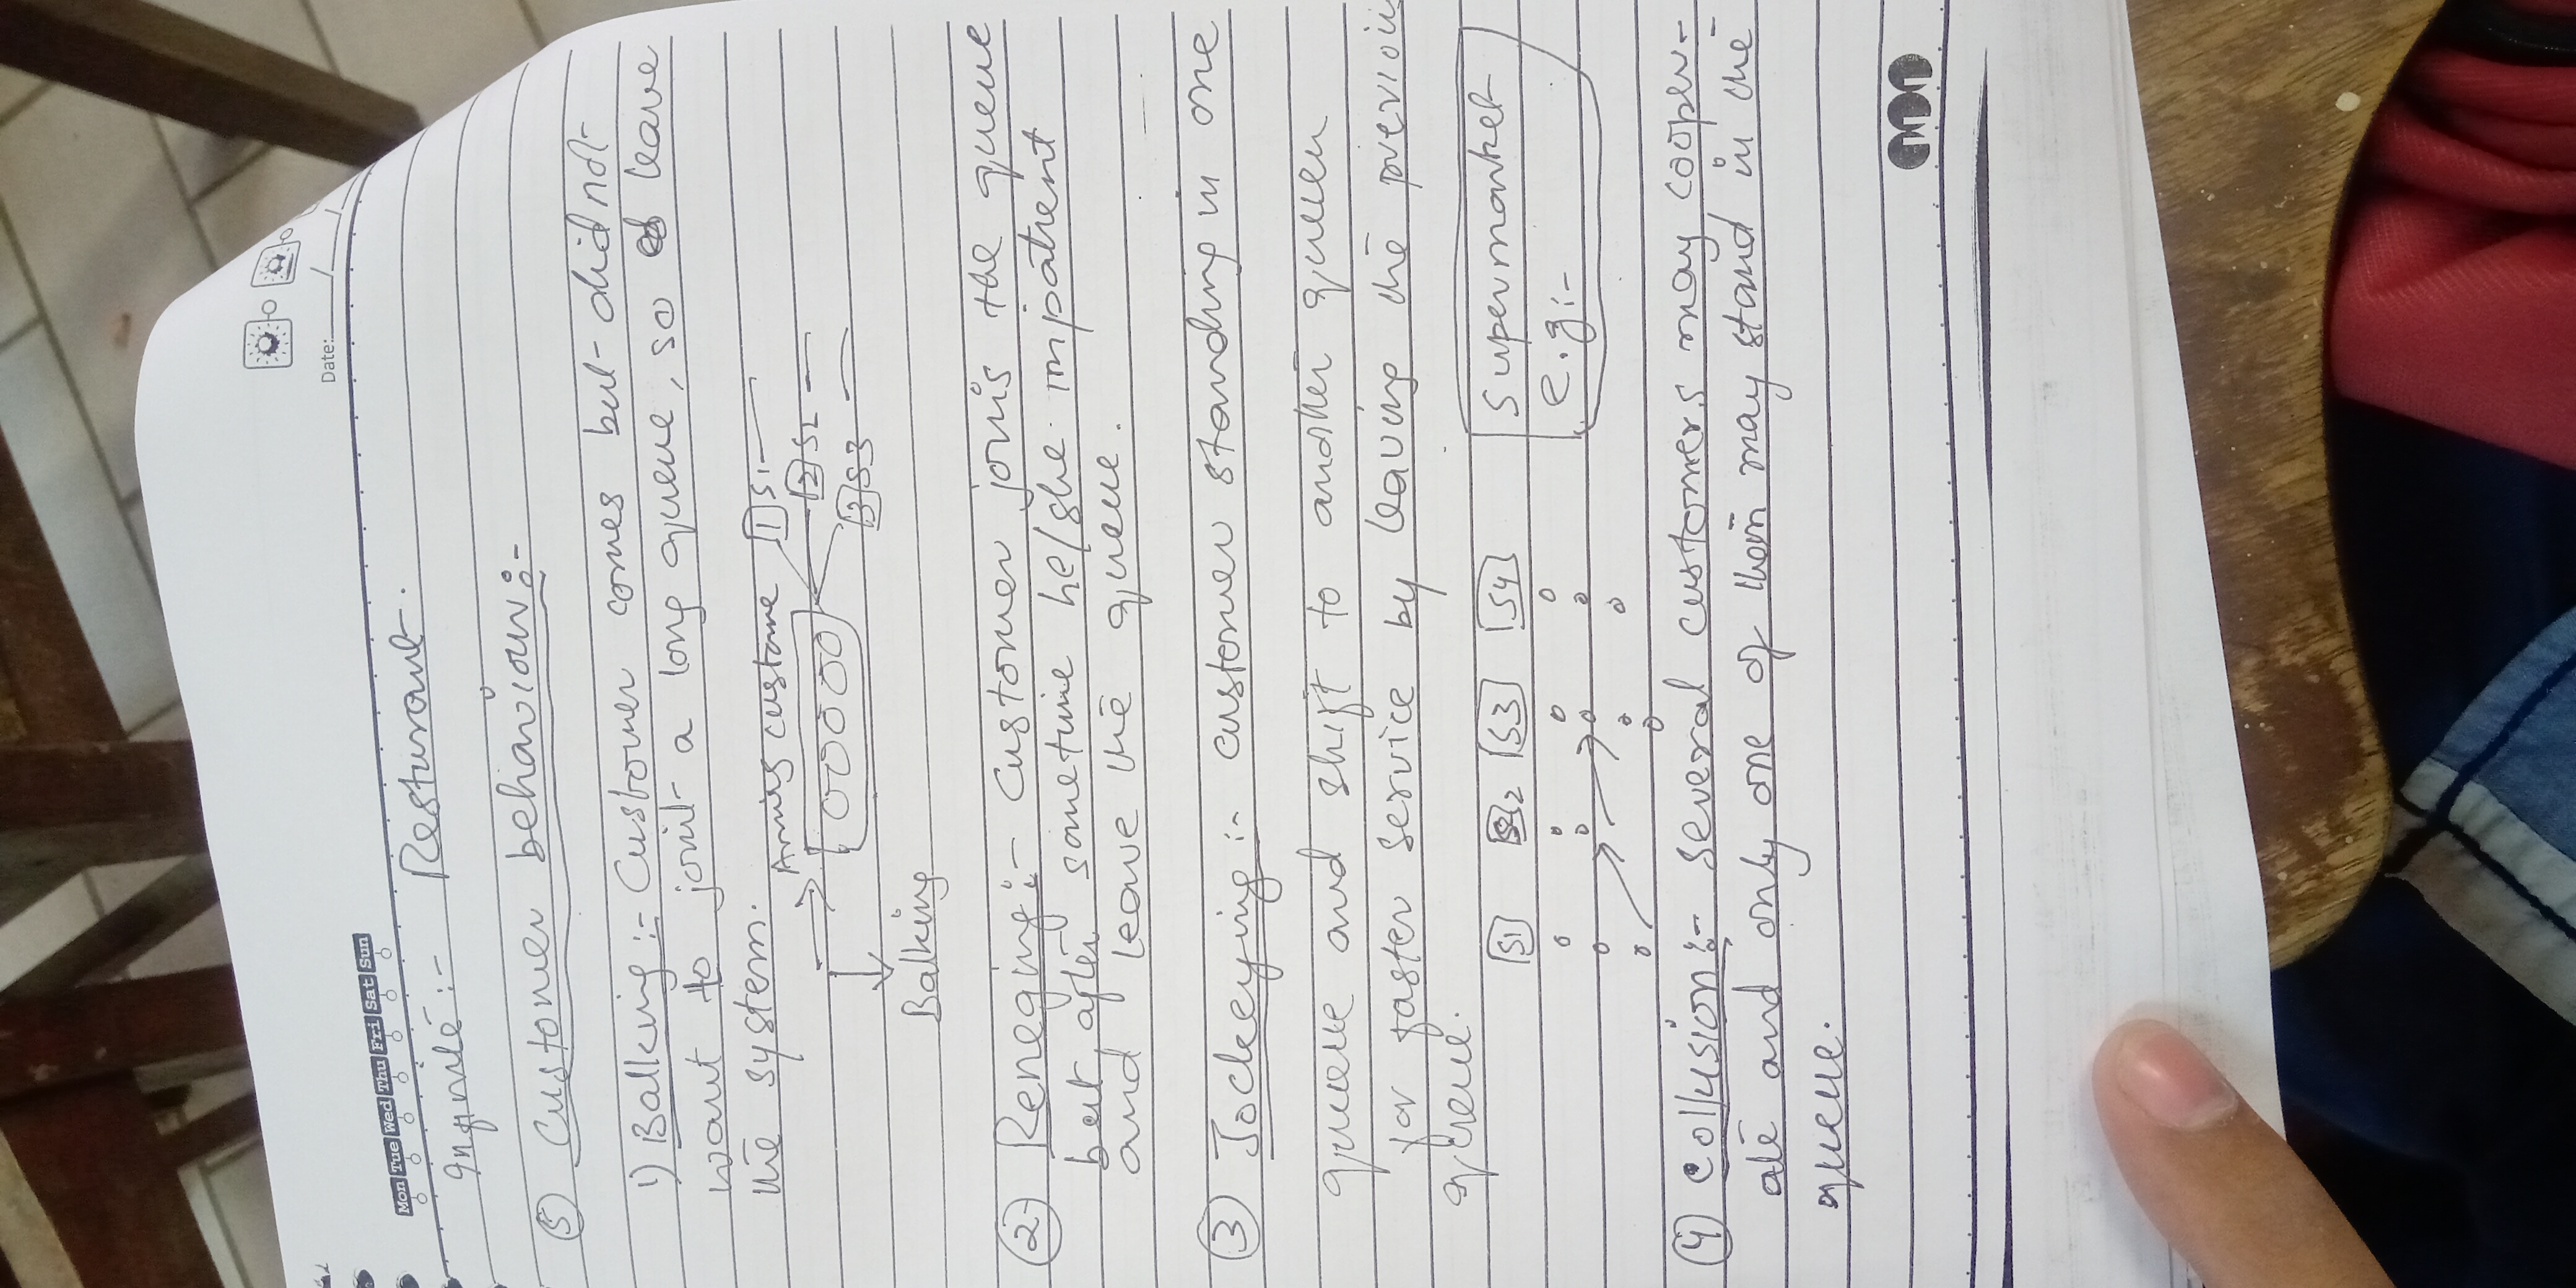 Mon Tue Wed Thu Fri Sat Sun
Date:
Infinite :- Resturant.
⑤ Customer behaviour :-
1) Balking :- Customer comes but did not
want to joint a long queue, so leave
the system.
custome
1 S1
2 S2
3 S3
Balking
② Reneging :- Customer joins the queue
but, after sometime he/she impatient
and leave the queue.
③ Jockeying :- customer standing in one
queue and shift to another queen
for faster service by leaving the previou
queue.
S1 S2 S3 S4
Supermarket
e.g :-
④ Collusion :- several customers may cooper-
ate and only one of them may stand in the
queue.